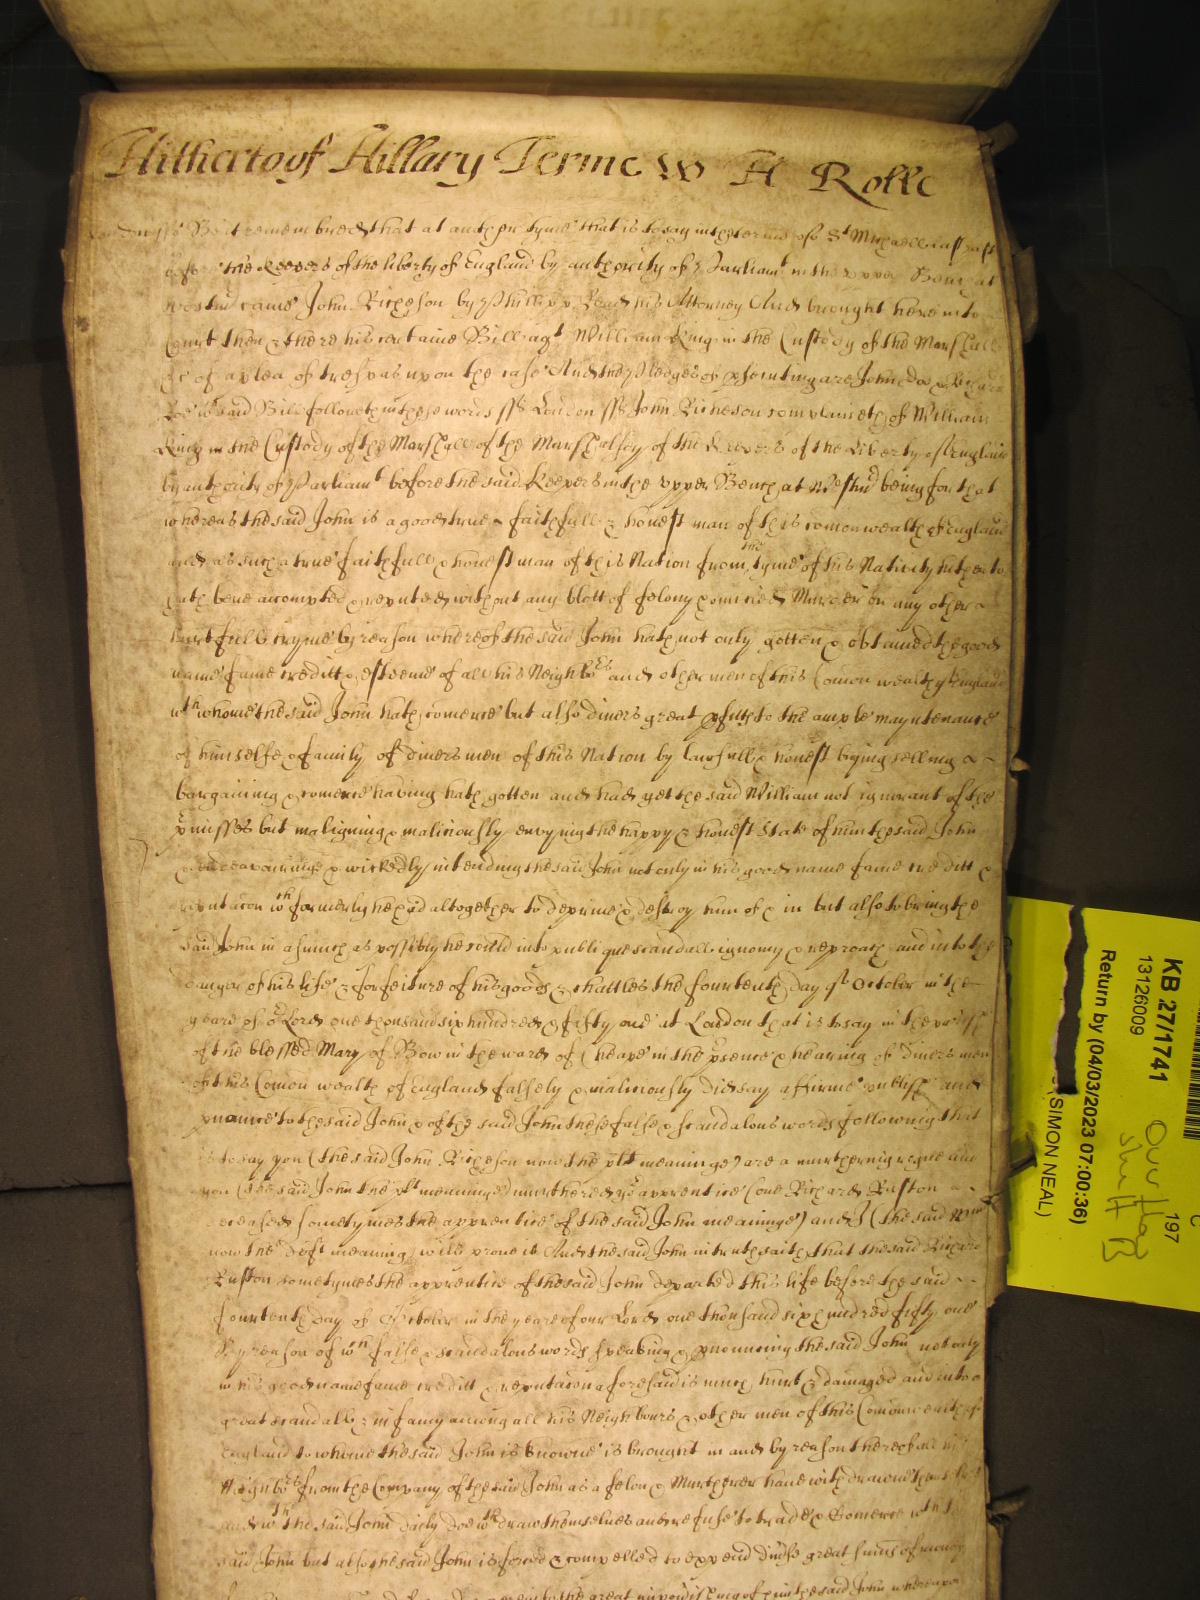 Hitherto of Hillary Terme W H Rolle
Be it remembred that at another tyme that is to say in the terme of St Michaell last past
before the Keepers of the liberty of England by authority of Parliamt in the upper Bench at
Westmr came John Richeson by Phillipp Read his Attorney And brought here into
Court then & there his certaine Bill agt William King in the Custody of the Marshall
&c of a plea of trespas upon the case And the Pledges of psecuting are John Doe & Richard
Roe wch said Bill followeth in these words ss London ss John Richeson complaineth of William
King in the Custody of the Marshall of the Marshalsey of the Keepers of the Liberty of England
by authority of Parliamt before the said Keepers in the upper Bench at Westmr being for that
whereas the said John is a good true faithfull & honest man of this comonwealth of England
and as such a true faithfull & honest man of this Nation from the tyme of his Nativity hitherto
hath bene accompted & reputed without any blott of felony Murder or any other
hurtfull cryme by reason whereof the said John hath not only gotten & obtained the good
name fame creditt & esteeme of all his Neighbors and other men of this Comon wealth of England
wth whome the said John hath comerce but also divers great pfitts to the ample mayntenance
of himselfe & family of divers men of this Nation by lawfull & honest bying selling &
bargaining & comerce having hath gotten and had yet the said William not ignorant of the
pmisses but maligning & maliciously envying the happy & honest state of him the said John
& endeavouringe & wickedly intending the said John not only in his good name fame creditt &
reputacon wch formerly he had altogether to deprive & destroy him of & in but also to bring the
said John in asmuch as possibly he could into publique scandall ignomy & reproach and into the
danger of his life & forfeiture of his goods & chattles the fourteenth day of October in the
yeare of or Lord one thousand six hundred & fifty one at London that is to say in the parish
of the blessed Mary of Bow in the ward of Cheape in the psence & hearing of divers men
of this Comon wealth of England falsely & maliciously did say affirme publish and
pnounce to the said John & of the said John these false & scandalous words following that
is to say you (the said John Richeson now the plt meaninge) are a murthering rogue and
you (the said John the plt meaninge) murthered yor apprentice (one Richard Ruston
deceased sometymes the apprentice of the said John meaninge) and I (the said Willm
now the deft meaning) will prove it And the said John in truth saith that the said Richard
Ruston sometymes the apprentice of the said John departed this life before the said
fourteenth day of October in the yeare of our Lord one thousand six hundred fifty one
By reason of wch false & scandalous words speaking & pnouncing the said John not only
in his good name fame creditt & reputacon aforesaid is much hurt & damaged and into a
great scandall & infamy among all his Neighbours & other men of this Comonwealth of
England to whome the said John is knowne is brought in and by reason thereof all his
Neighbors from the Company of the said John as a felon & Murtherer have withdrawne themselves
and wth the said John daily doe wthdraw themselves and refuse to trade & Comerce wth the
said John but also the said John is forced & compelled to expend divse great sums of money
to the great impovishing of him the said John whereupon
KB 27/1741
13126009
Return by (04/03/2023 07:00:36)
(SIMON NEAL)
197
C